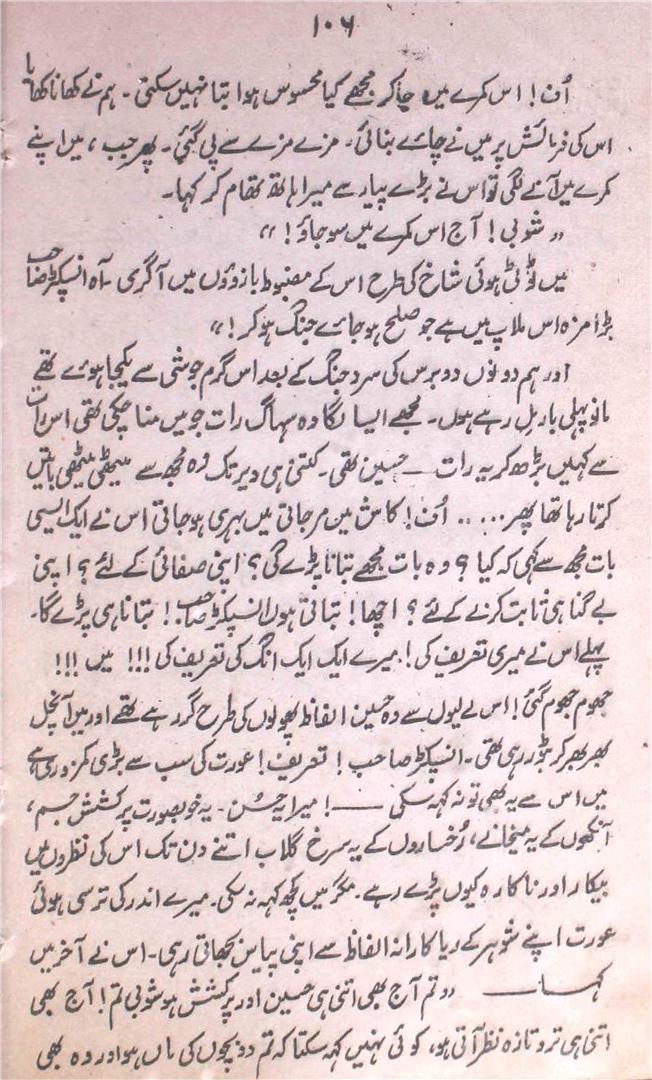 ۱۰۶
اُف! اس کمرے میں جا کر مجھے کیا محسوس ہوا بتا نہیں سکتی۔ ہم نے کھانا کھایا
اس کی فرمائش پر میں نے چائے بنائی۔ مزے مزے سے پی گئی۔ پھر جب، میں اپنے
کمرے میں آنے لگی تو اس نے بڑے پیار سے میرا ہاتھ تھام کر کہا۔
”شوبی! آج اس کمرے میں سو جاؤ!“
میں ٹوٹی ہوئی شاخ کی طرح اس کے مضبوط بازوؤں میں آ گری۔ آہ انسپکٹر صاحب
بڑا مزہ اس ملاپ میں ہے جو صلح ہو جائے جنگ ہو کر!“
اور ہم دونوں دو برس کی سرد جنگ کے بعد اس گرم جوشی سے یکجا ہوئے تھے
مانو پہلی بار مل رہے ہوں۔ مجھے ایسا لگا وہ سہاگ رات جو میں منا چکی تھی اس رات
سے کہیں بڑھ کر یہ رات —— حسین تھی۔ کتنی ہی دیر تک وہ مجھ سے میٹھی میٹھی باتیں
کرتا رہا تھا پھر ..... اُف! کاش میں مر جاتی میں بہری ہو جاتی اس نے ایک ایسی
بات مجھ سے کہی کہ کیا؟ وہ بات مجھے بتانا پڑے گی؟ اپنی صفائی کے لئے؟ اپنی
بے گناہی ثابت کرنے کے لئے؟ اچھا! بتاتی ہوں انسپکٹر صاحب! بتانا ہی پڑے گا۔
پہلے اس نے میری تعریف کی! میرے ایک ایک انگ کی تعریف کی!!! میں!!!
جھوم جھوم گئی! اس کے لبوں سے وہ حسین الفاظ پھولوں کی طرح گر رہے تھے اور میں آنچل
بھر بھر کر بٹور رہی تھی۔ انسپکٹر صاحب! تعریف! عورت کی سب سے بڑی کمزوری ہے
میں اس سے یہ بھی تو نہ کہہ سکی ——! میرا حُسن۔ یہ خوبصورت پر کشش جسم،
آنکھوں کے یہ میخانے، رُخساروں کے یہ سرخ گلاب اتنے دن تک اس کی نظروں میں
بیکار اور ناکارہ کیوں پڑے رہے۔ مگر میں کچھ کہہ نہ سکی۔ میرے اندر کی ترسی ہوئی
عورت اپنے شوہر کے ریاکارانہ الفاظ سے اپنی پیاس بجھاتی رہی۔ اس نے آخر میں
کہا —— ”تم آج بھی اتنی ہی حسین اور پر کشش ہو شوبی تم! آج بھی
اتنی ہی تر و تازہ نظر آتی ہو، کوئی نہیں کہہ سکتا کہ تم دو بچوں کی ماں ہو اور وہ بھی